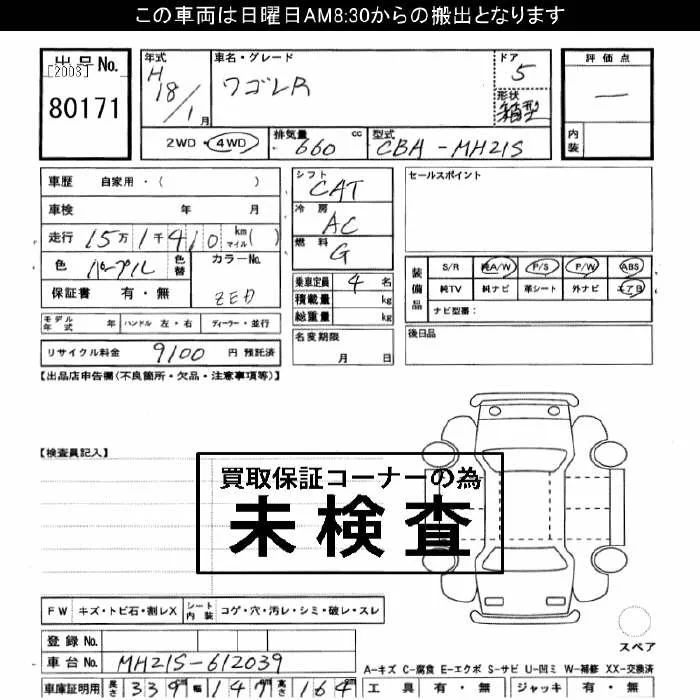 この車両は日曜日AM8:30からの搬出となります
出品No.
[2003]
80171
年式
H
18/1月
車名・グレード
ワゴンR
ドア
5
形状
箱型
評価点
—
内装
2WD・4WD
排気量
660 cc
型式
CBA-MH21S
車歴 自家用・( )
車検 年 月
走行 15万1千410 km マイル( )
色 パープル 色替 カラーNo.
ZED
保証書 有・無
シフト
CAT
冷房
AC
燃料
G
乗車定員 4名
積載量 kg
総重量 kg
セールスポイント
装備品
S/R 純A/W P/S P/W ABS
純TV 純ナビ 革シート 外ナビ エアB
ナビ型番:
モデル年式 年 ハンドル 左・右 ディーラー・並行
名変期限
月 日
後日品
リサイクル料金 9100 円 預託済
【出品店申告欄(不良箇所・欠品・注意事項等)】
【検査員記入】
買取保証コーナーの為
未検査
FW キズ・トビ石・割レX シート内装 コゲ・穴・汚レ・シミ・破レ・スレ
スペア
登録No.
車台No. MH21S-612039
A-キズ C-腐食 E-エクボ S-サビ U-凹ミ W-補修 XX-交換済
車庫証明用 長さ 339 幅 147 高さ 164
工具 有・無 ジャッキ 有・無